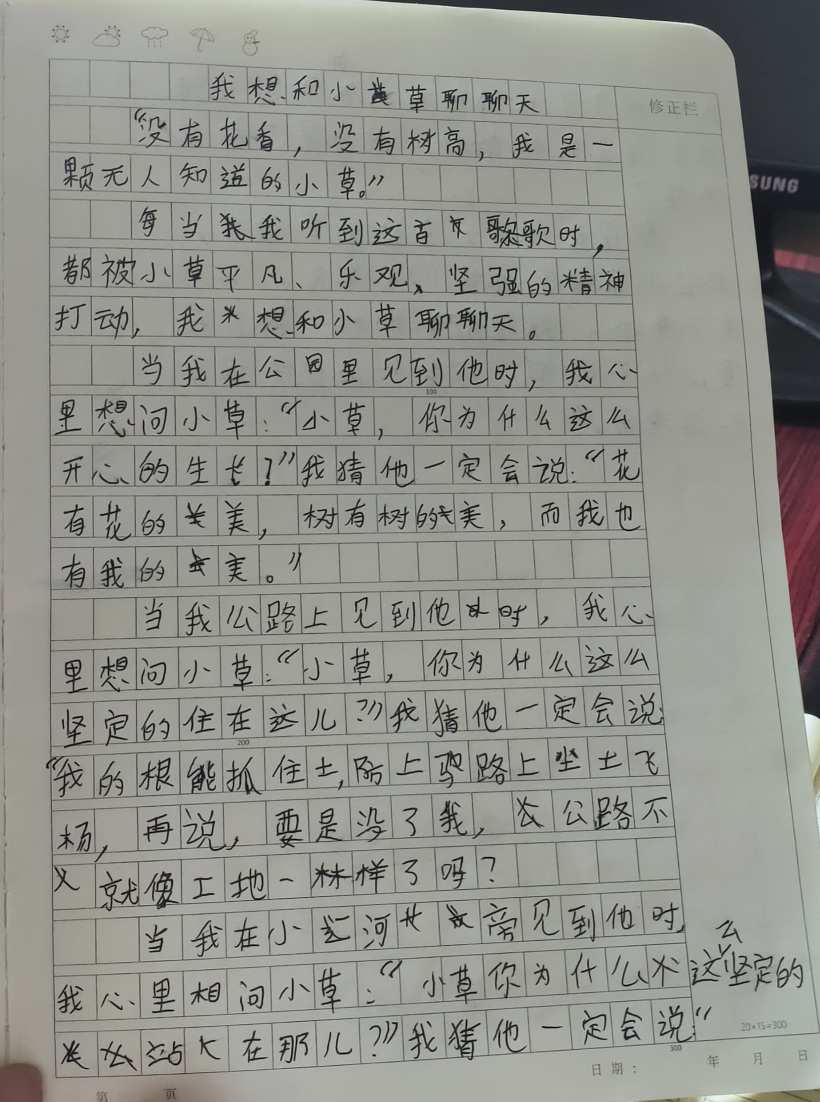 我想和小草聊聊天
修正栏
“没有花香，没有树高，我是一
颗无人知道的小草。”
每当我听到这首歌时，
都被小草平凡、乐观、坚强的精神
打动，我想和小草聊聊天。
当我在公园里见到他时，我心
100
里想问小草：“小草，你为什么这么
开心的生长？”我猜他一定会说：“花
有花的美，树有树的美，而我也
有我的美。”
当我公路上见到他时，我心
里想问小草：“小草，你为什么这么
坚定的住在这儿？”我猜他一定会说：
200
“我的根能抓住土，防上路上土飞
杨，再说，要是没了我，公路不
就像工地一样了吗？
当我在小河旁见到他时，
我心里想问小草：“小草你为什么这么坚定的
站在那儿？”我猜他一定会说：“
20×15=300
300
日期： 年 月 日
第 页
SUNG